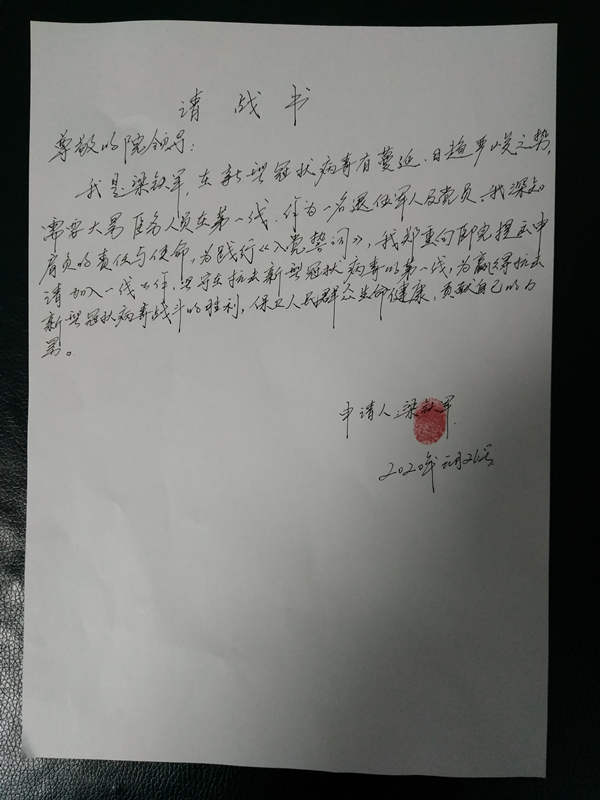 请战书
尊敬的院领导:
我是梁钦军,在新型冠状病毒有蔓延、日趋严峻之势,
需要大量医务人员在第一线,作为一名退伍军人及党员,我深知
肩负的责任与使命,为践行《入党誓词》,我郑重向医院提出申
请加入一线工作,坚守在抗击新型冠状病毒的第一线,为赢得抗击
新型冠状病毒战斗的胜利,保卫人民群众生命健康,贡献自己的力
量。
申请人:梁钦军
2020年元月26日